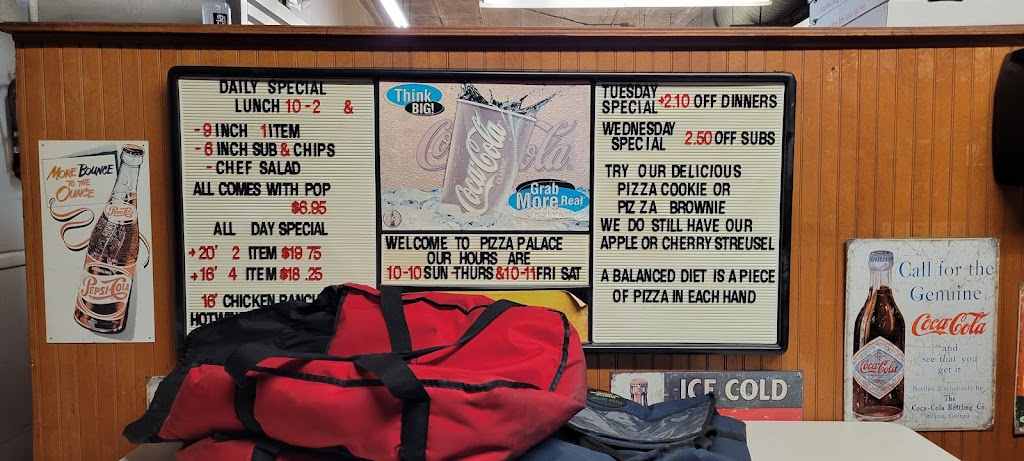 DAILY SPECIAL
LUNCH 10-2 &
-9 INCH 1 ITEM
-6 INCH SUB & CHIPS
- CHEF SALAD
ALL COMES WITH POP
$6.95
ALL DAY SPECIAL
20' 2 ITEM $19 75
16' 4 ITEM $18 .25
16' CHICKEN
Think
BIG!
Coca-Cola
Coca-Cola
Grab
More Real
WELCOME TO PIZZA PALACE
OUR HOURS ARE
10-10 SUN-THURS & 10-11 FRI SAT
TUESDAY
SPECIAL 2.10 OFF DINNERS
WEDNESDAY
SPECIAL 2.50 OFF SUBS
TRY OUR DELICIOUS
PIZZA COOKIE OR
PIZZA BROWNIE
WE DO STILL HAVE OUR
APPLE OR CHERRY STREUSEL
A BALANCED DIET IS A PIECE
OF PIZZA IN EACH HAND
MORE BOUNCE
TO THE
OUNCE
PEPSI-COLA
Call for the
Genuine
Coca-Cola
and
see that you
get it
Bottled Exclusively by
The
Coca-Cola Bottling Co.
Atlanta, Georgia
Coca-Cola
ICE COLD